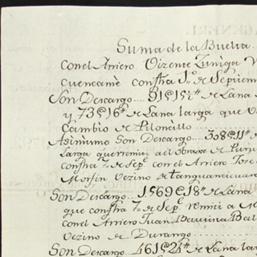 Suma de la Buelta
con el Arriero Vizente Zuniga V
cuencamè consfta 5º de Septiem
Son Descargo 91@15 de Lana
y 73@16 de Lana larga que
Cambio de Piloncillo
Asimismo Son Descargo 308@11
Larga que
consfta de Sepe con el Arriero Jose
Morfin Vezino de tanguamicuaro
Son Descargo 1569@18 de Lana
que consfta de Sepe remiti a
con el Arriero Juan
Vezino de Durango
Son Descargo 461@24 de Lana larga